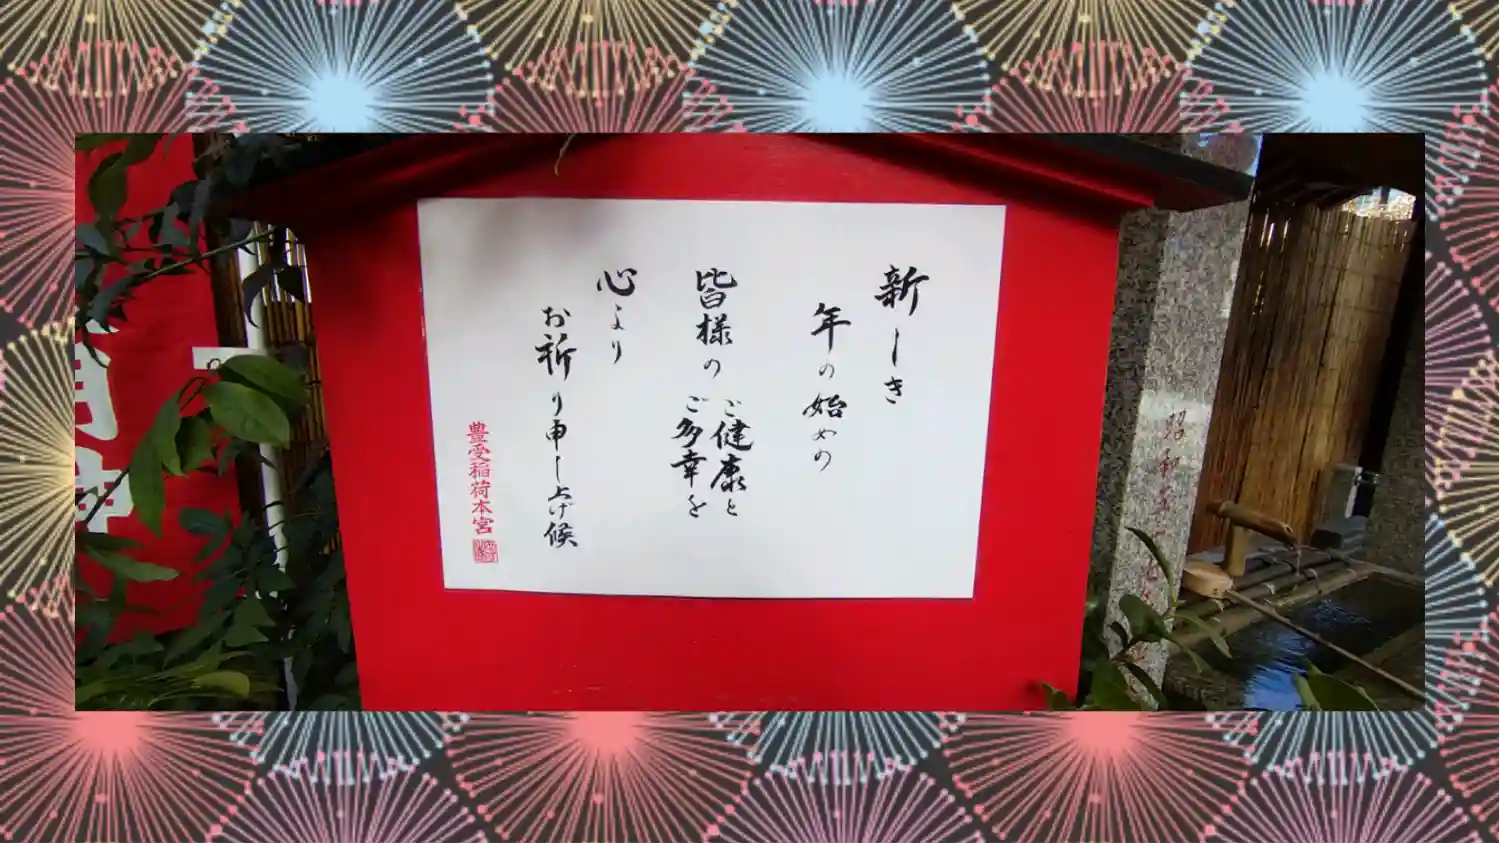 新しき
年の始めの
皆様の
ご健康と
ご多幸を
心より
お祈り申し上げ候
豊受稲荷本宮
昭和